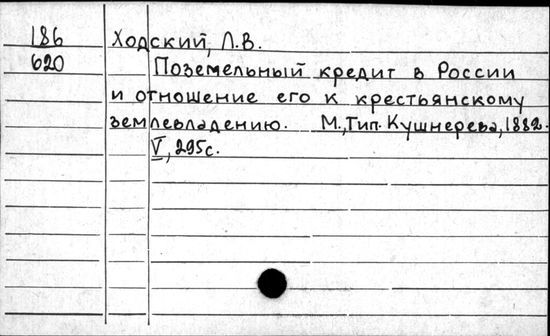 186 Ходский, Л.В.
620 Поземельный кредит в России
и отношение его к крестьянскому
землевладению. М., Тип. Кушнерева, 1882.
V, 295с.